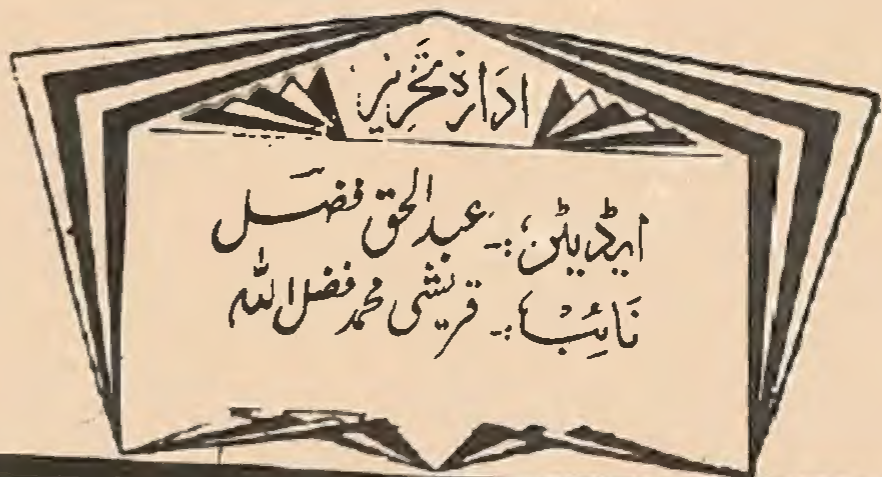 ادارۂ تحریر
ایڈیٹر:- عبدالحق فضل
نائب:- قریشی محمد فضل اللہ